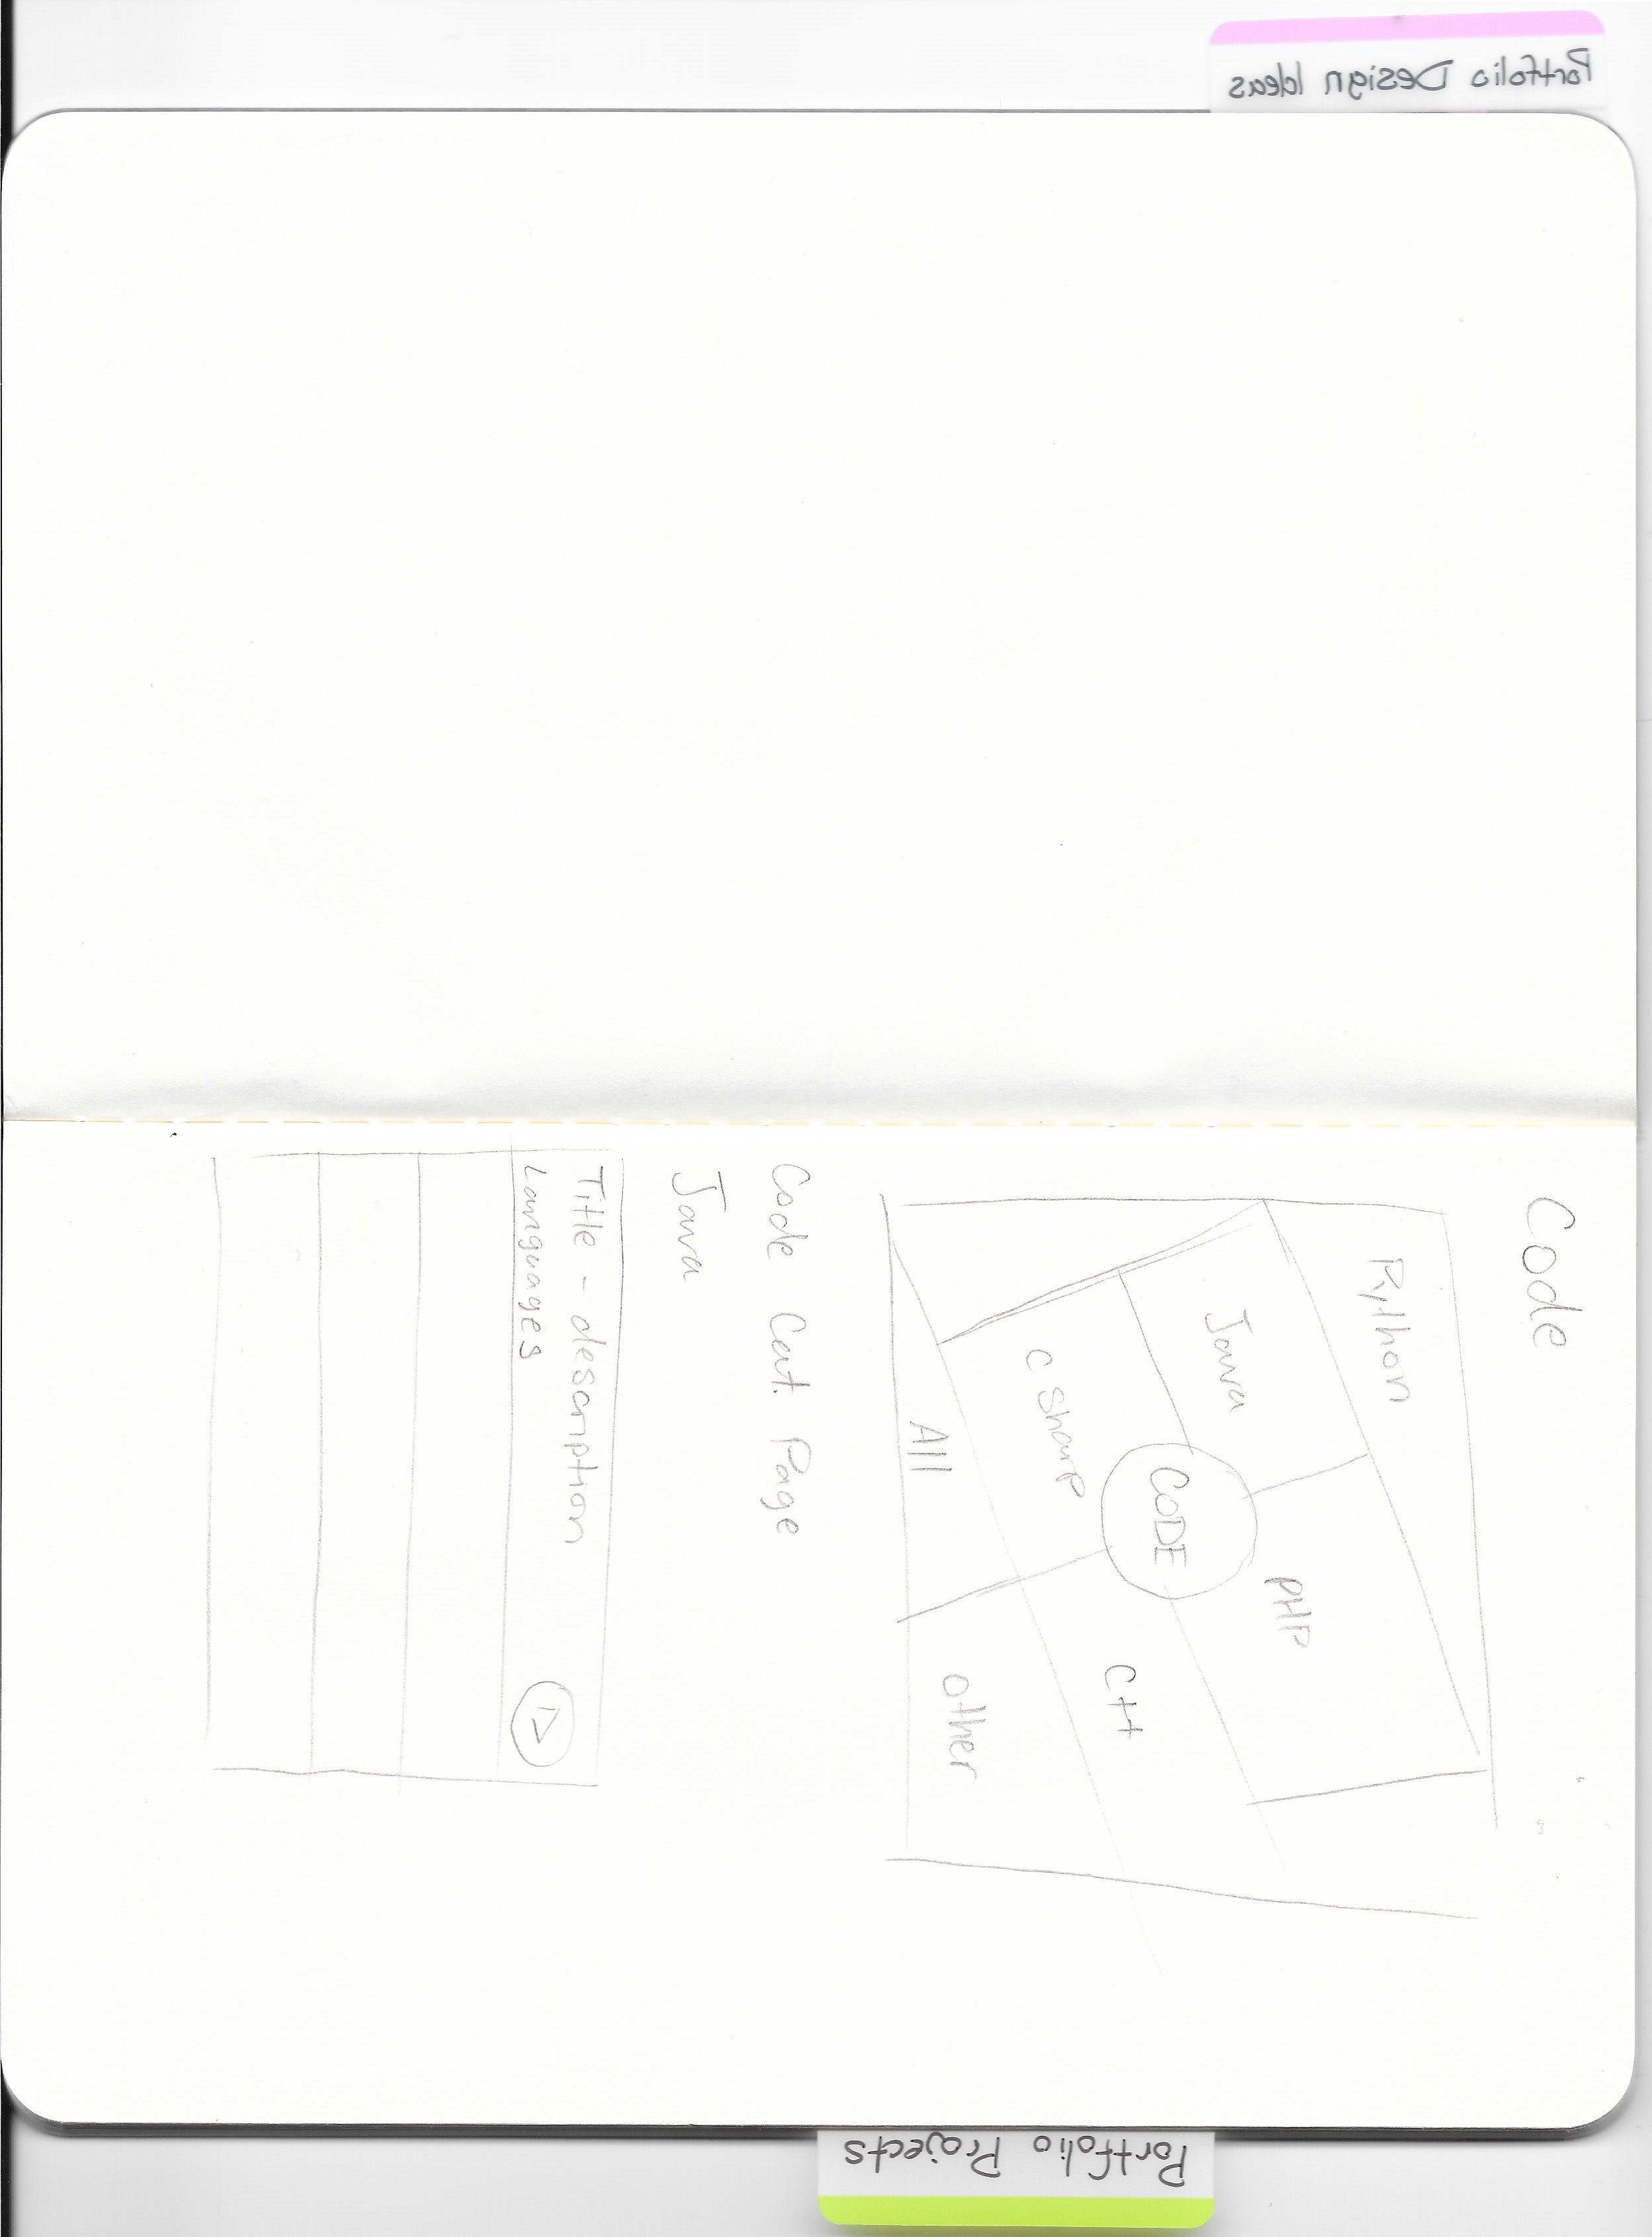 Portfolio Design Ideas
Code
Python
Java
PHP
C Sharp
CODE
C++
All
Other
Code Cat. Page
Java
Title - description
Languages
Portfolio Projects